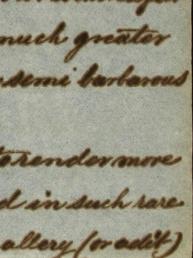 much greater
semi barbarous
to render more
d in such rare
allery (or adit)